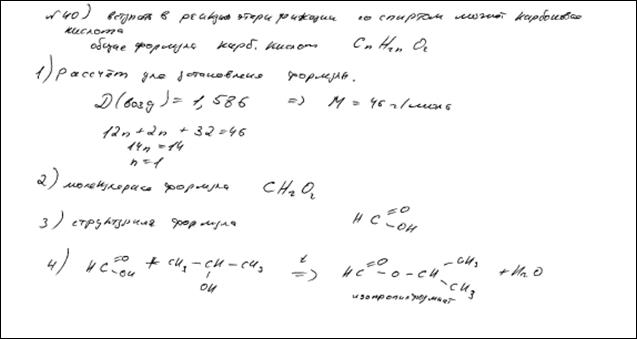 №40) вступать в реакцию этерификации со спиртом может карбоновая
кислота
общая формула карб. кислот CnH2nO2
1) Рассчёт для установления формулы.
D(возд) = 1,586 => M = 46 г/моль
12n + 2n + 32 = 46
14n = 14
n = 1
2) молекулярная формула CH2O2
3) структурная формула HC =O -OH
4) HC =O OH + CH3 - CH - CH3 t => HC =O - O - CH CH3 CH3 + H2O
OH
изопропилформиат